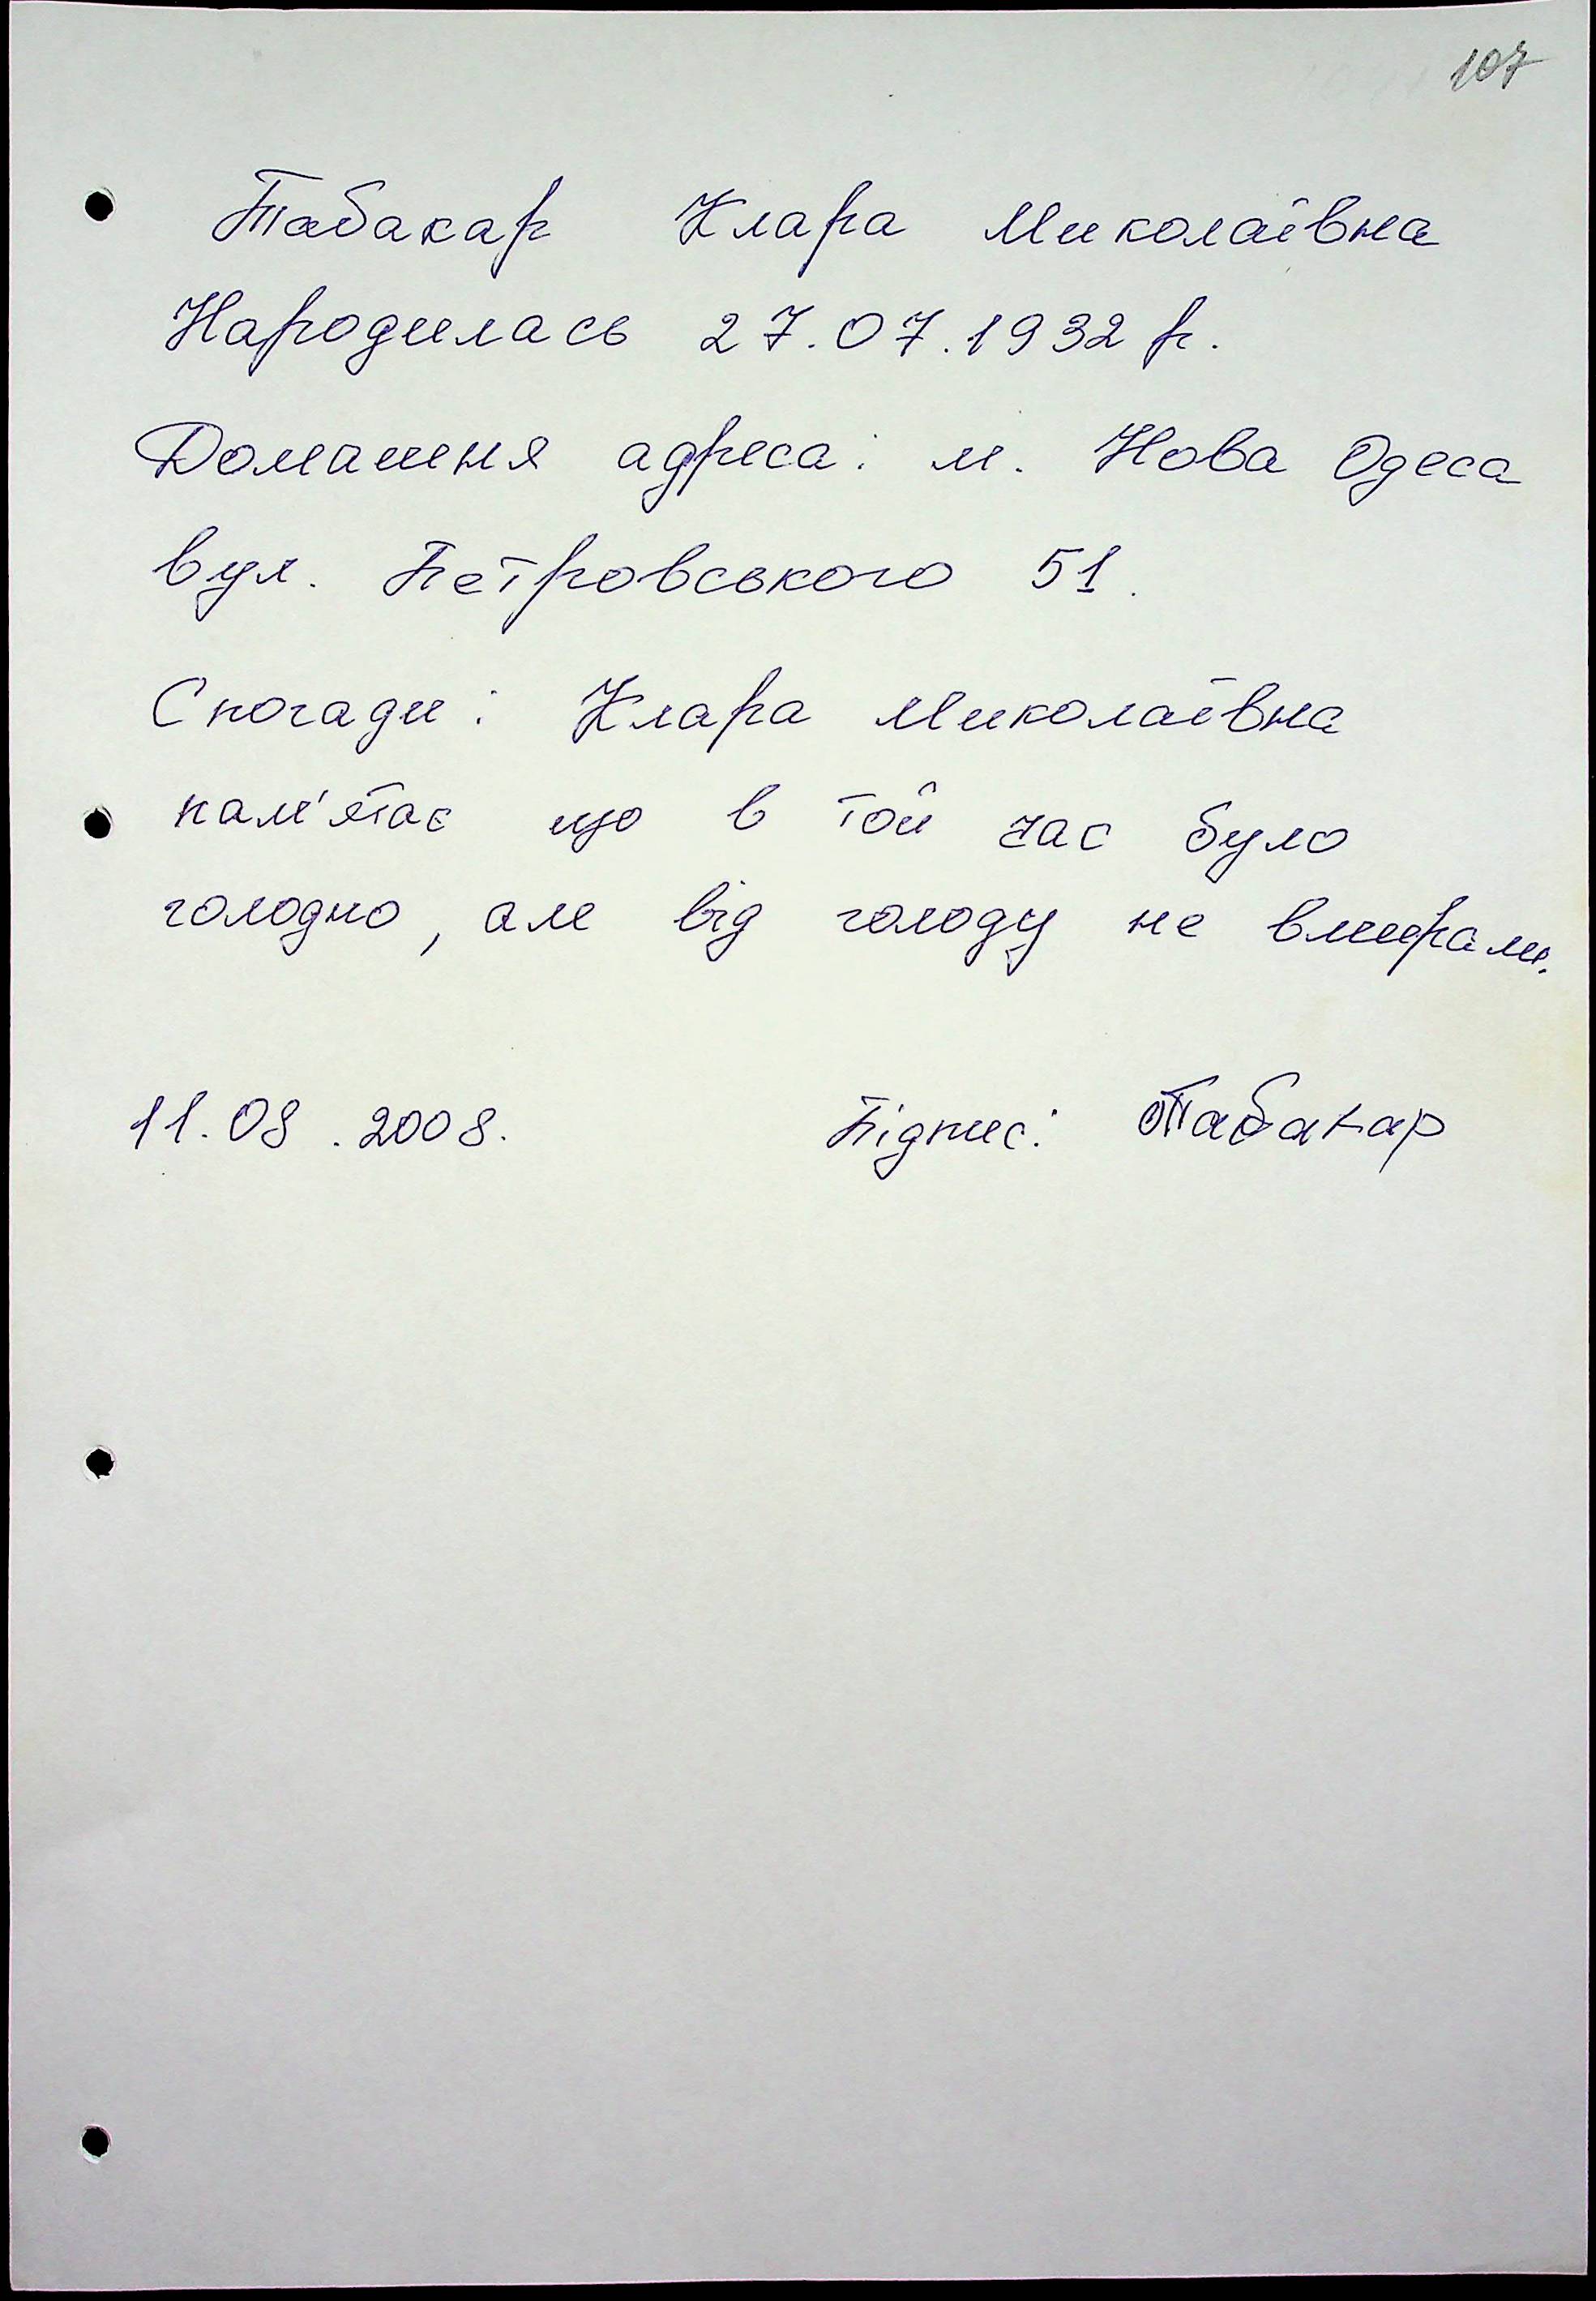 107
Табакар Клара Миколаївна
Народилась 27.07.1932 р.
Домашня адреса: м. Нова Одеса
вул. Петровського 51.
Спогади: Клара Миколаївна
пам'ятає що в той час було
голодно, але від голоду не вмирали.
11.08.2008. Підпис: Табакар